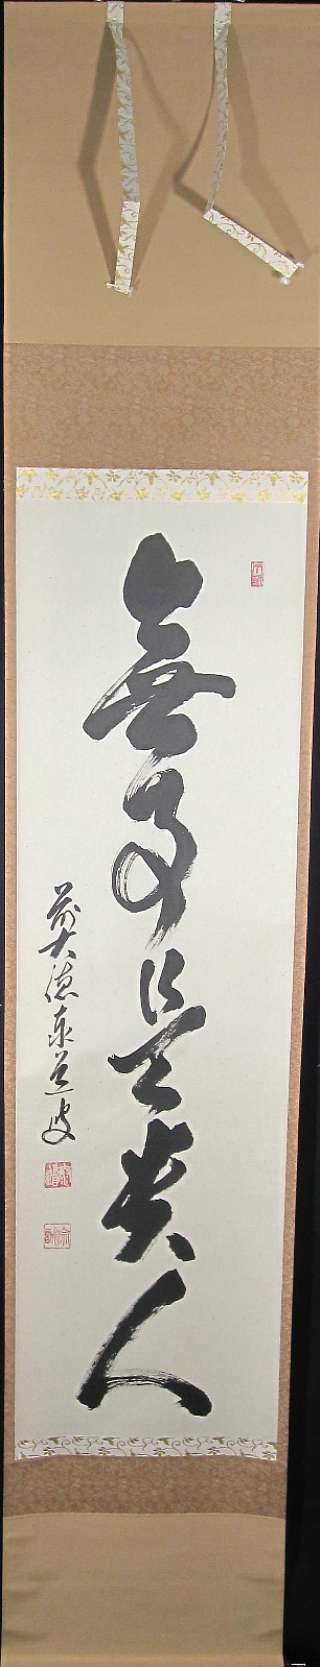 無事是貴人
前大徳泰道叟